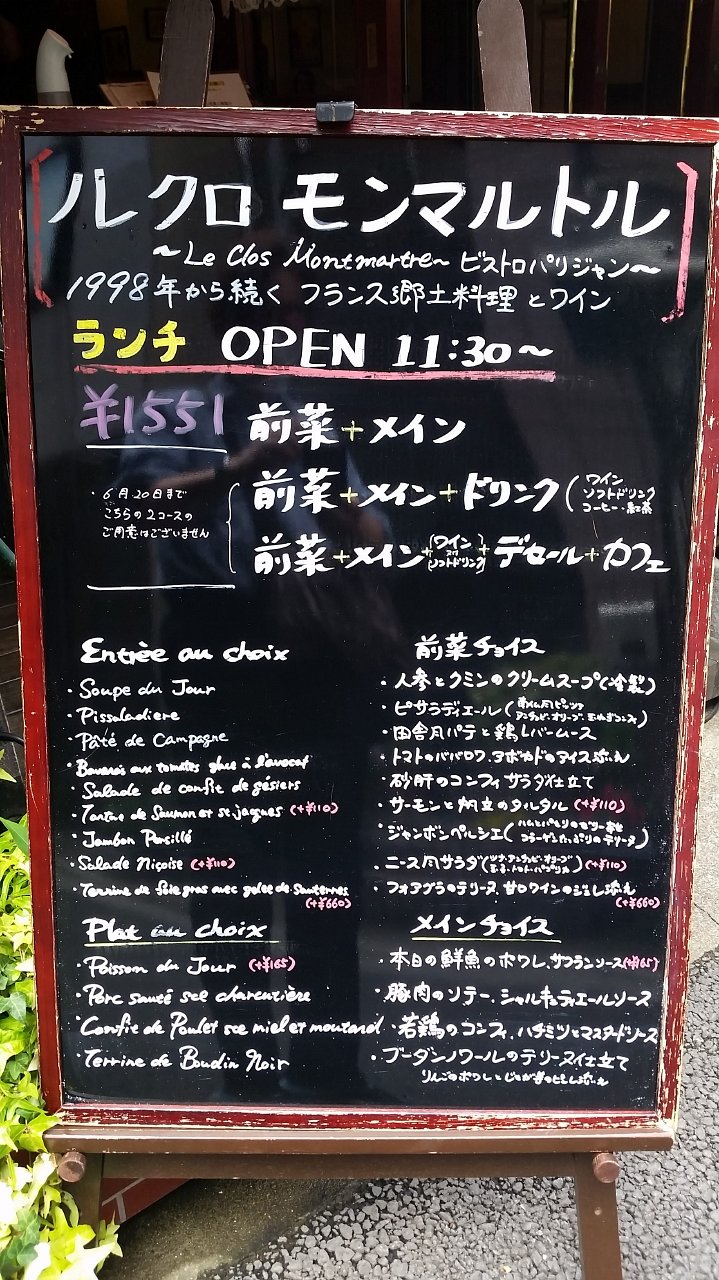 ル クロ モンマルトル
~Le Clos Montmartre~ ビストロパリジャン~
1998年から続く フランス郷土料理とワイン
ランチ OPEN 11:30~
¥1551 前菜+メイン
・6月20日まで
こちらの2コースの
ご用意はございません
前菜+メイン+ドリンク(ワイン
ソフトドリンク
コーヒー・紅茶
前菜+メイン+{ワイン
又は
ソフトドリンク}+デセール+カフェ
Entrée au choix
・Soupe du Jour
・Pissaladiere
・Pâté de Campagne
・Bavarois aux tomates glace à l'avocat
・Salade de confit de gésiers
・Tartar de Saumon et st-jaques (+¥110)
・Jambon Persillé
・Salade Niçoise (+¥110)
・Terrine de foie gras avec gelée de Sauternes
(+¥660)
Plat au choix
・Poisson du Jour (+¥165)
・Porc sauté sce charcutière
・Confit de Poulet sce miel et moutard
・Terrine de Boudin Noir
前菜チョイス
・人参とクミンのクリームスープ(冷製)
・ピサラディエール(南仏風ピッツァ
アンチョビ・オリーブ・玉ねぎソース)
・田舎風パテと鶏レバームース
・トマトのババロワ、アボカドのアイス添え
・砂肝のコンフィ サラダ仕立て
・サーモンと帆立のタルタル (+¥110)
・ジャンボンペルシエ(ハムとパセリのゼリー寄せ
コラーゲンたっぷりのテリーヌ)
・ニース風サラダ(ツナ・アンチョビ・オリーブ
玉子・トマト・パプリカ) (+¥110)
・フォアグラのテリーヌ 甘口ワインのジュレ添え
(+¥660)
メインチョイス
・本日の鮮魚のポワレ、サフランソース(+¥165)
・豚肉のソテー、シャルキュティエールソース
・若鶏のコンフィ、ハチミツとマスタードソース
・ブーダンノワールのテリーヌ仕立て
りんごのポワレとじゃが芋のピュレ添え